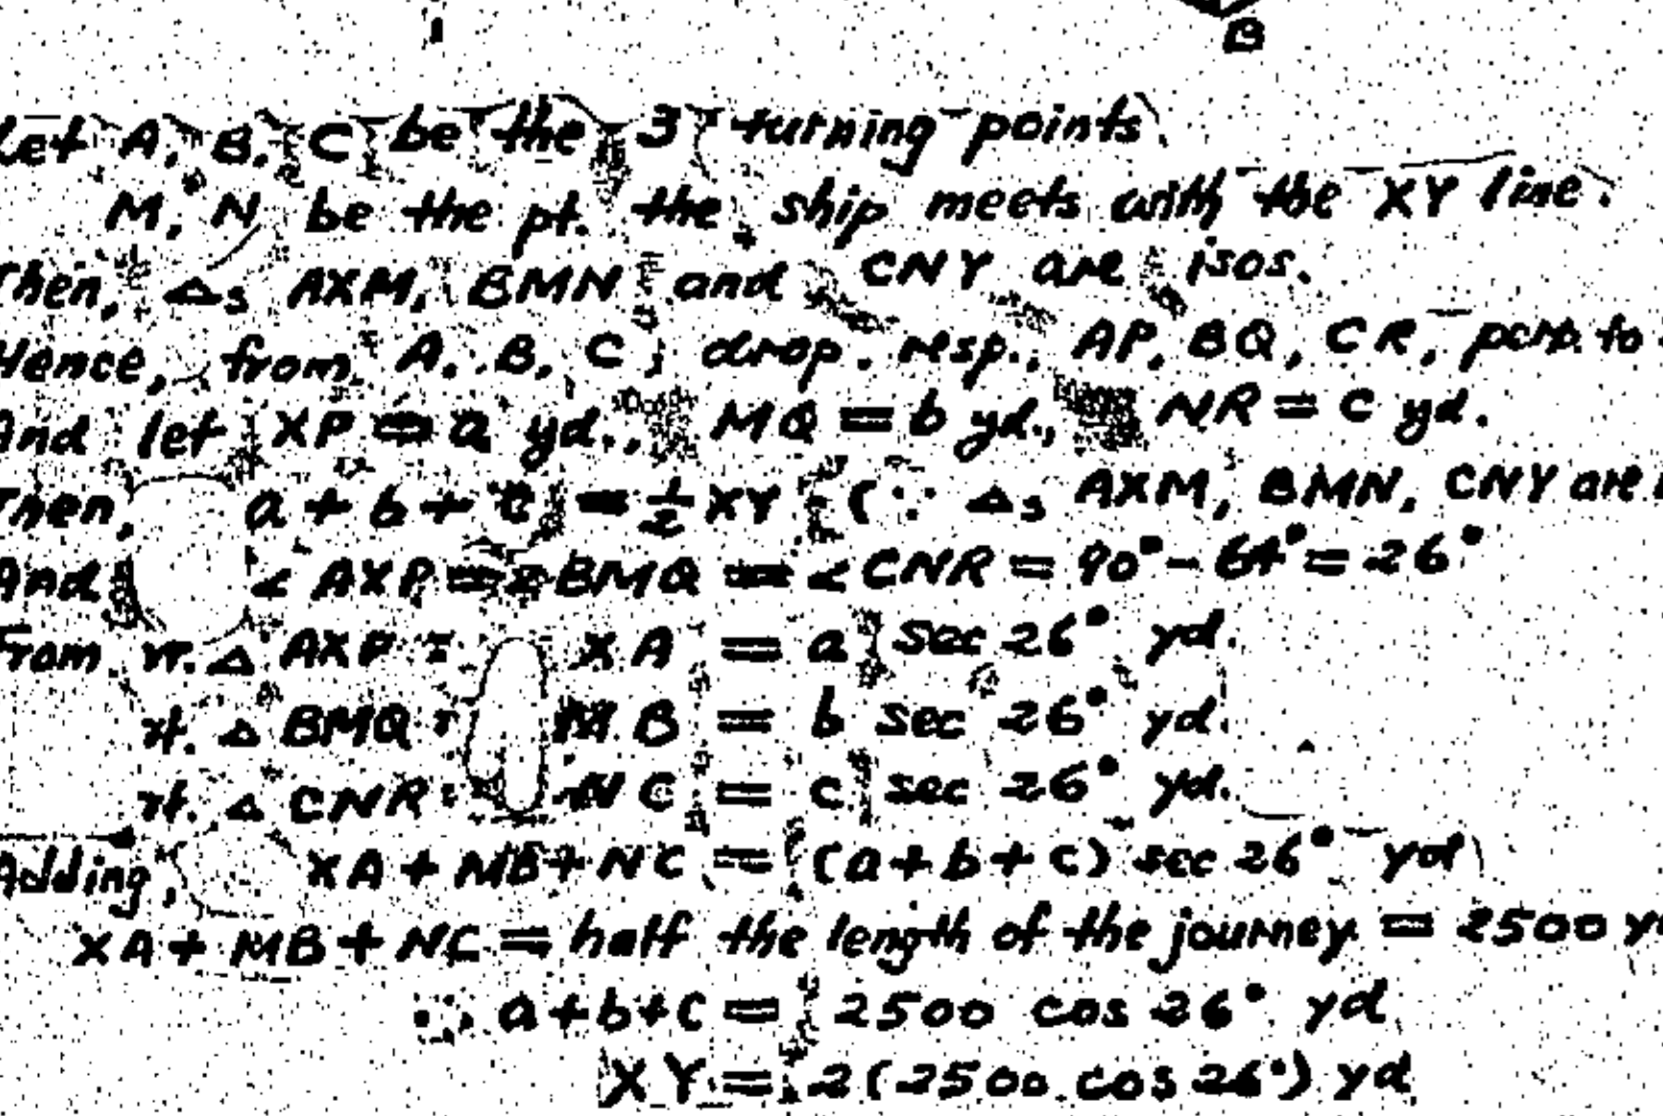 B
Let A, B, C be the 3 turning points.
M, N be the pt. the ship meets with the XY line.
Then, △s AXM, BMN and CNY are isos.
Hence, from A, B, C, drop. resp., AP, BQ, CR, perp. to
And let XP = a yd., MQ = b yd., NR = c yd.
Then, a + b + c = ½ XY (∵ △s AXM, BMN, CNY are
And ∠AXP = ∠BMQ = ∠CNR = 90° - 64° = 26°
From rt. △ AXP: XA = a sec 26° yd.
rt. △ BMQ: MB = b sec 26° yd.
rt. △ CNR: NC = c sec 26° yd.
Adding, XA + MB + NC = (a + b + c) sec 26° yd
XA + MB + NC = half the length of the journey = 2500
∴ a + b + c = 2500 cos 26° yd
XY = 2(2500 cos 26°) yd